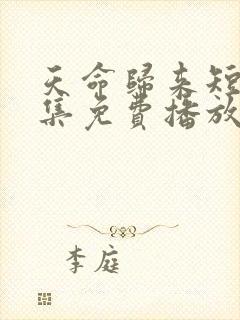 天命歸来短
集免費播放
李庭